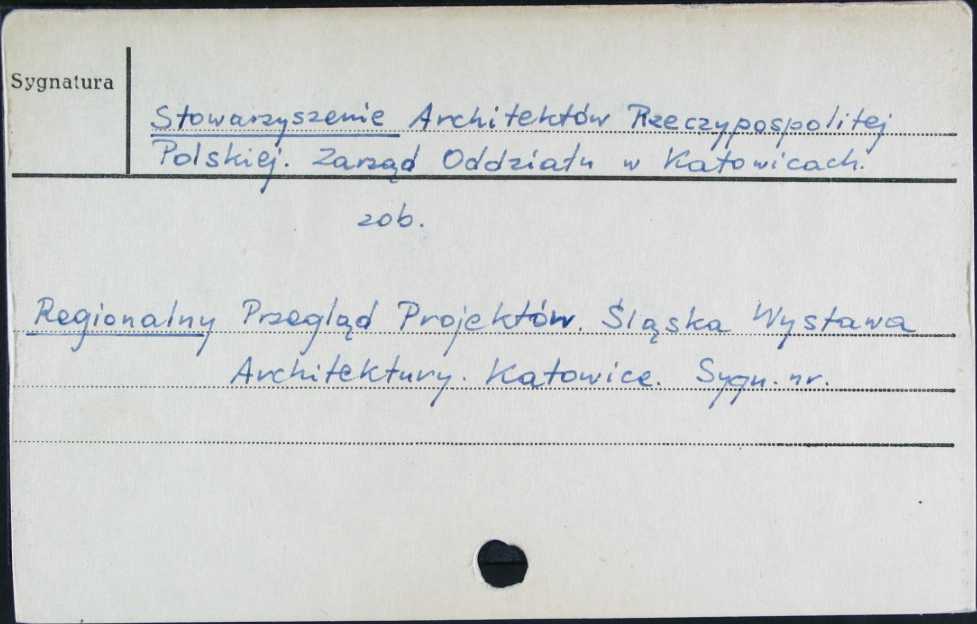 Sygnatura
Stowarzyszenie Architektów Rzeczypospolitej
Polskiej. Zarząd Oddziału w Katowicach.
zob.
Regionalny Przegląd Projektów. Śląska Wystawa
Architektury. Katowice. Sygn. nr.